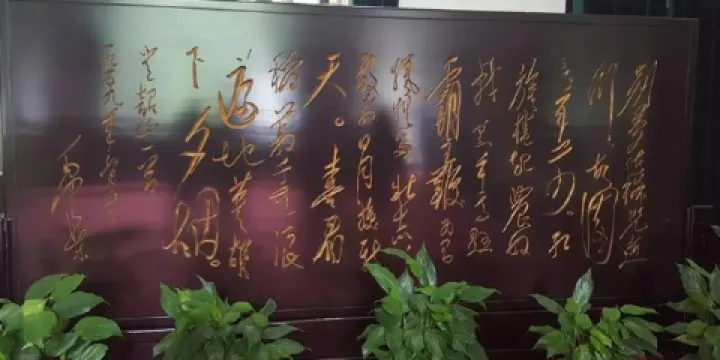 别梦依稀咒逝
川故园
三十二年前。红
旗卷起农奴
戟黑手高悬
霸主鞭为有
牺牲多壮志
敢教日月换新
天。喜看
稻菽千重浪
遍地英雄
下夕烟。
韶山一首
一九五九年
毛泽东